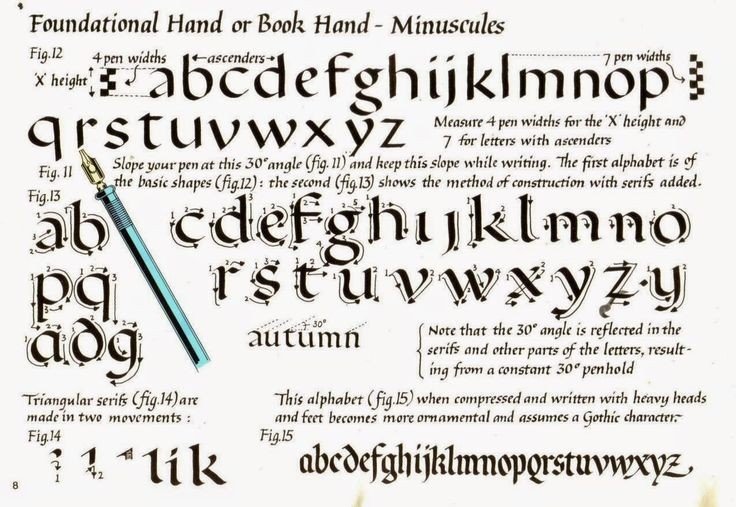 Foundational Hand or Book Hand - Minuscules
Fig.12
4 pen widths ←ascenders→ 7 pen widths
'X' height abcdefghijklmnop
qrstuvwxyz
Measure 4 pen widths for the 'X' height and
7 for letters with ascenders
Fig. 11
Slope your pen at this 30° angle (fig.11) and keep this slope while writing. The first alphabet is of
the basic shapes (fig.12) : the second (fig.13) shows the method of construction with serifs added.
Fig.13
ab cdefghıȷklmno
pq rstuvwxyz·y
adg
autumn 30°
Note that the 30° angle is reflected in the
serifs and other parts of the letters, result-
ing from a constant 30° penhold
Triangular serifs (fig.14) are
made in two movements :
This alphabet (fig.15) when compressed and written with heavy heads
and feet becomes more ornamental and assumes a Gothic character.
Fig.14
1 2 lik
Fig.15
abcdefghijklmnopqrstuvwxyz
8